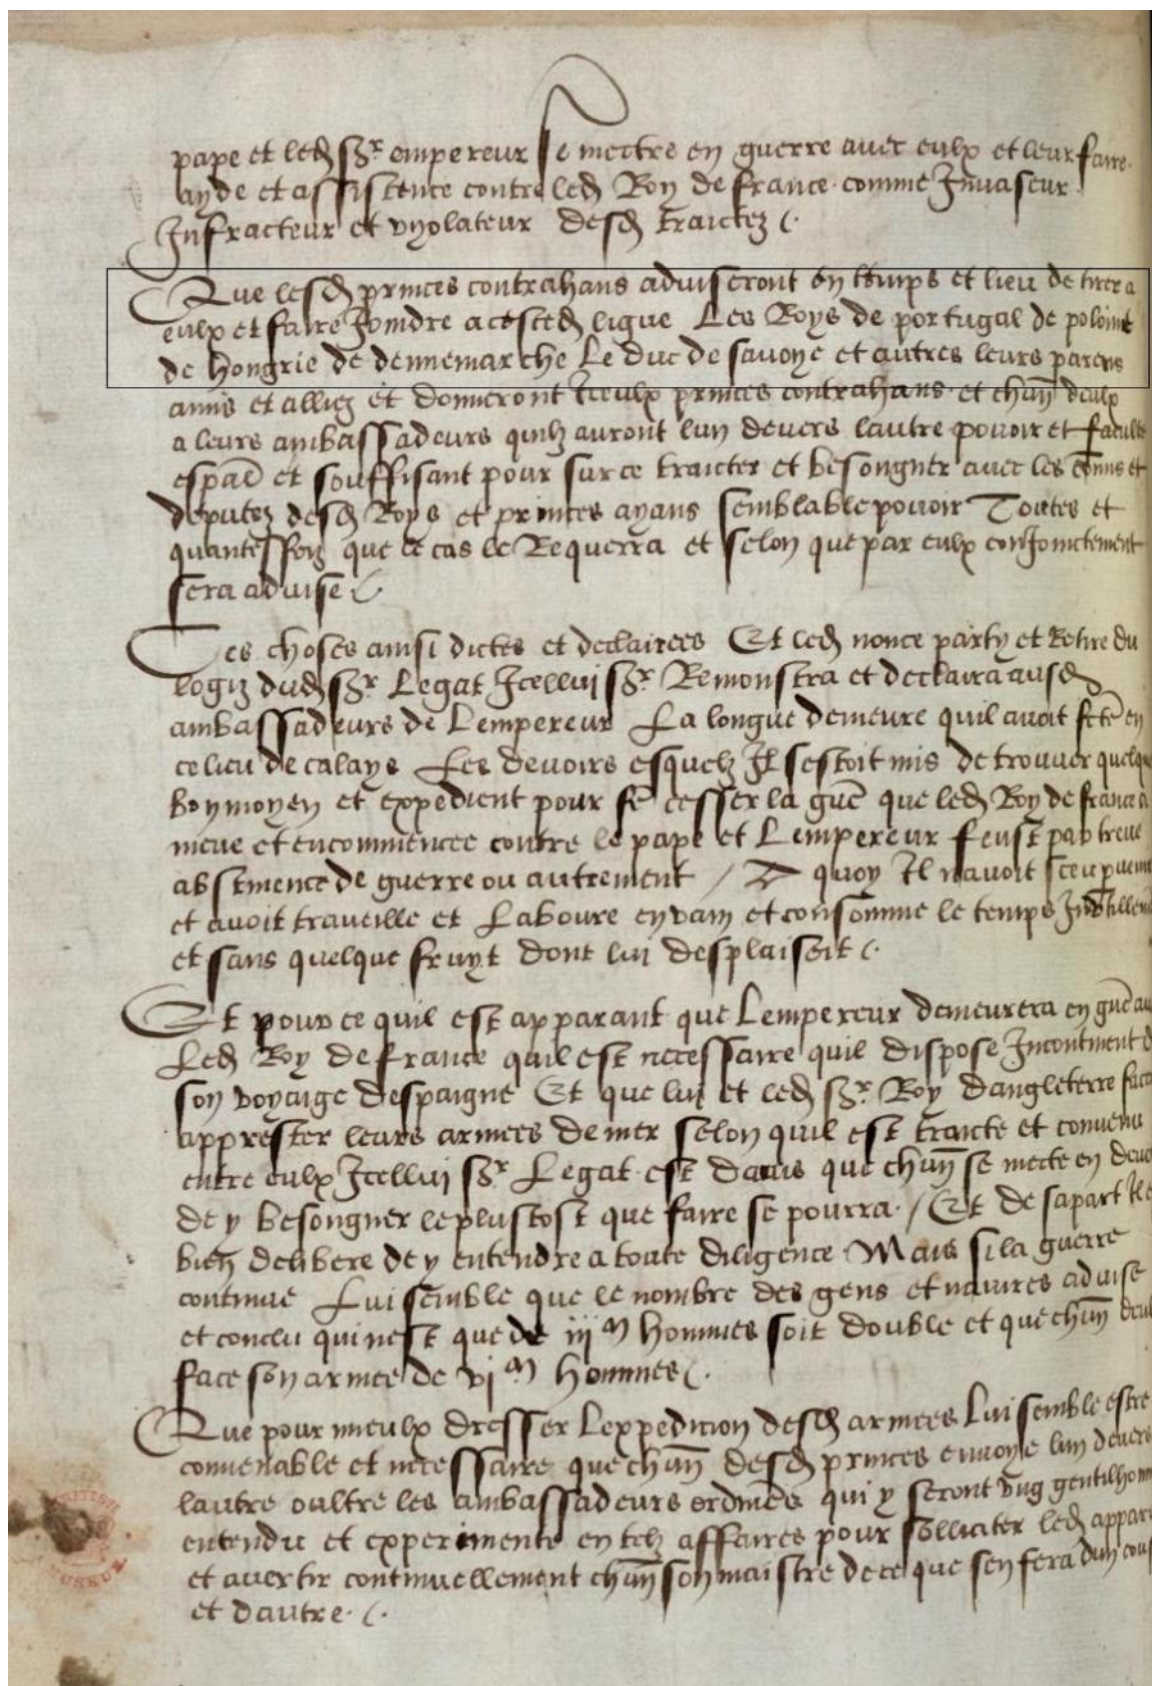 pape et led Sr empereur se mettre en guerre avec eulx et leur faire
ayde et assistence contre led Roy de france comme Invaseur
Infracteur et vyolateur desd traictez
Que lesd princes contrahans adviseront en temps et lieu de tirer a
eulx et faire Joindre a cested ligue Les Roys de portugal de poloinne
de Hongrie de dennemarche Le duc de savoye et autres leurs parens
amis et alliez et donneront Iceulx princes contrahans et chun deulx
a leurs ambassadeurs quilz auront lun devers lautre povoir et faculte
espal et souffisant pour sur ce traicter et besongner avec les comis et
deputez desd Roys et princes ayans semblable povoir Toutes et
quanteffoiz que le cas le Requerra et selon que par eulx conjoinctement
sera advise
Ces choses ainsi dictes et declairees Et led nonce party et Retire du
logiz dud Sr Legat Icellui Sr Remonstra et declaira ausd
ambassadeurs de Lempereur La longue demeure quil avoit fcte en
ce lieu de calays Les devoirs esquelz Il sestoit mis de trouver quelque
bon moyen et expedient pour fe cesser la gue que led Roy de france a
meue et encommencee contre le pape et Lempereur feust par treve
abstinence de guerre ou autrement / A quoy Il navoit sceu
et avoit traveille et Laboure en vain et consomme le temps
et sans quelque fruyt dont lui desplaisoit
Et pour ce quil est apparant que Lempereur demeurera en gue
Led Roy de france quil est necessaire quil dispose Incontinent
son voyaige despaigne Et que lui et led Sr Roy dangleterre
apprester leurs armees de mer selon quil est traicte et convenu
entre eulx Icellui Sr Legat est davis que chun se mecte en
de y besongner le plustost que faire se pourra / Et de sa part
bien delibere de y entendre a toute diligence Mais si la guerre
continue Lui semble que le nombre des gens et navires advise
et conclu qui nest que de iij m hommes soit double et que chun
face son armee de vj m hommes
Que pour mieulx dresser Lexpedicion desd armees Lui semble estre
convenable et necessaire que chun desd princes envoye lun devers
lautre oultre les ambassadeurs ordinees qui y seront ung
entendu et experimente en telz affaires pour solliciter led
et avertir continuellement chun son maistre de ce que sen fera dun
et dautre
BRITISH
MUSEUM